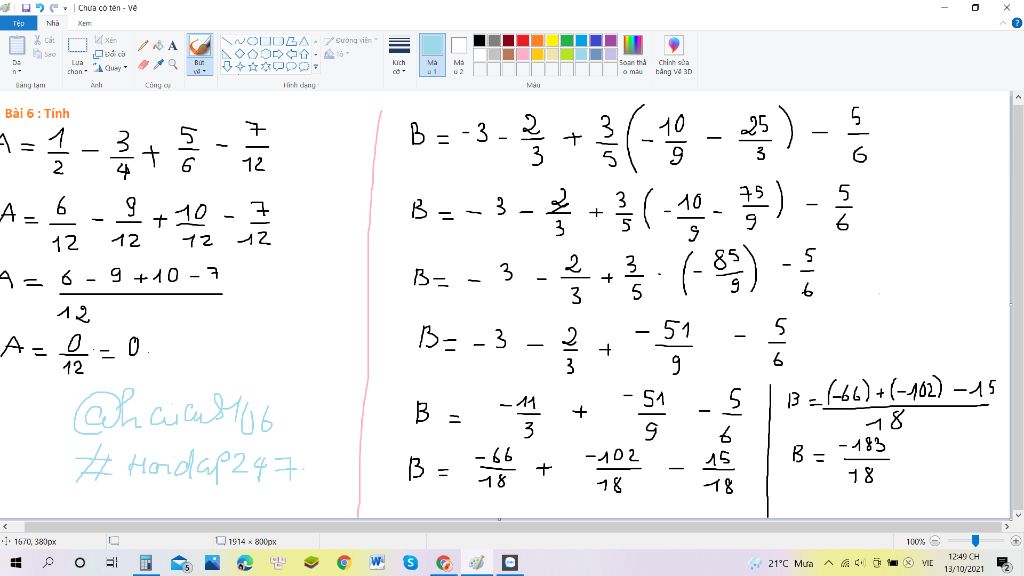 Chưa có tên - Vẽ
Tệp Nhà Xem
Dán Cắt Sao
Lựa chọn Xén Đổi cỡ Quay
A
Bút vẽ
Đường viền Tô
Kích cỡ
Màu 1 Màu 2
Soạn thảo màu
Chỉnh sửa bằng Vẽ 3D
Bảng tạm Ảnh Công cụ Hình dạng Màu
Bài 6 : Tính
A = 1/2 - 3/4 + 5/6 - 7/12
A = 6/12 - 9/12 + 10/12 - 7/12
A = (6 - 9 + 10 - 7)/12
A = 0/12 = 0.
#Hoidap247.
B = -3 - 2/3 + 3/5 (-10/9 - 25/3) - 5/6
B = -3 - 2/3 + 3/5 (-10/9 - 75/9) - 5/6
B = -3 - 2/3 + 3/5 . (-85/9) - 5/6
B = -3 - 2/3 + -51/9 - 5/6
B = -11/3 + -51/9 - 5/6
B = -66/18 + -102/18 - 15/18
B = ((-66) + (-102) - 15)/18
B = -183/18
1670, 380px 1914 × 800px 100%
21°C Mưa VIE 12:49 CH
13/10/2021